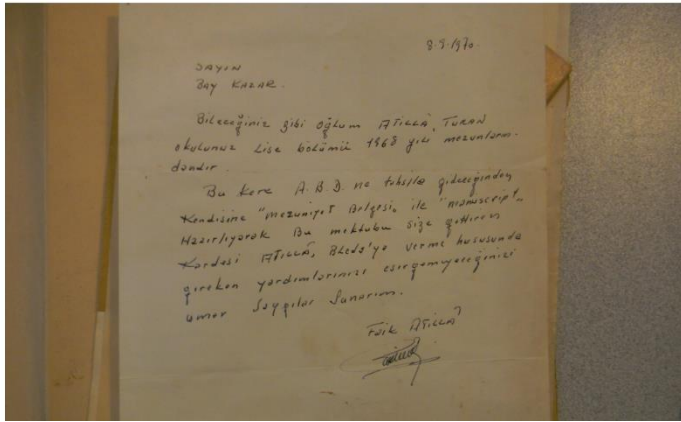 8.9.1970.
SAYIN
BAY KAZAR.
Bileceğiniz gibi oğlum ATİLLÂ, TURAN
okulunuz Lise bölümü 1968 yılı mezunların-
dandır.
Bu kere A.B.D. ne tahsile gideceğinden
Kendisine "Mezuniyet Belgesi" ile "manuscript"
Hazırlıyarak Bu mektubu size getiren
Kardeşi ATİLLÂ, Bleda'ya verme hususunda
gereken yardımlarınızı esirgemiyeceğinizi
umar Saygılar Sunarım.
Faik ATİLLÂ